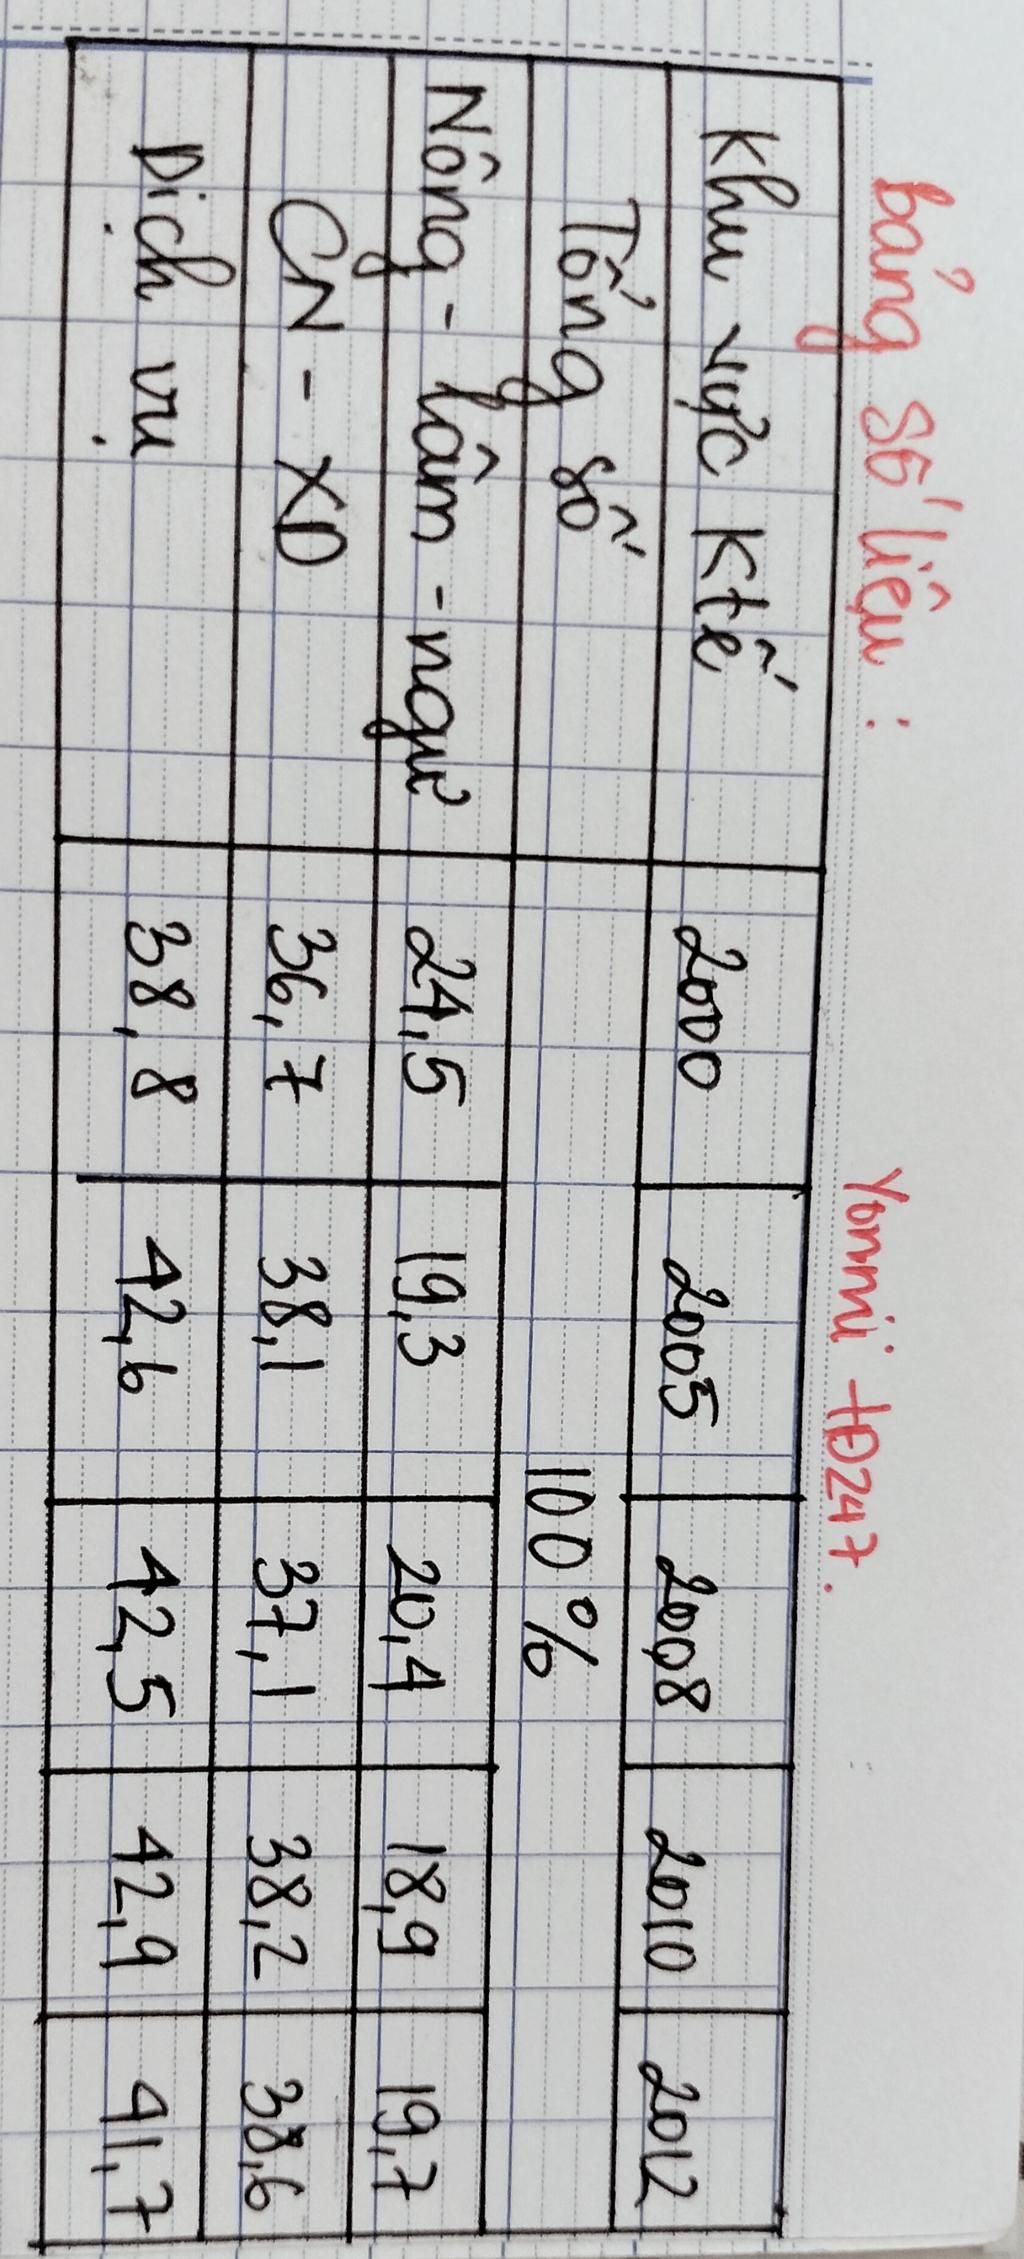 bảng số liệu :
Yonnii tĐ247.
Khu vực Ktế 2000 2005 2008 2010 2012
Tổng số 100 %
Nông - lâm - ngư 24,5 19,3 20,4 18,9 19,7
CN - XD 36,7 38,1 37,1 38,2 38,6
Dịch vụ 38,8 42,6 42,5 42,9 41,7